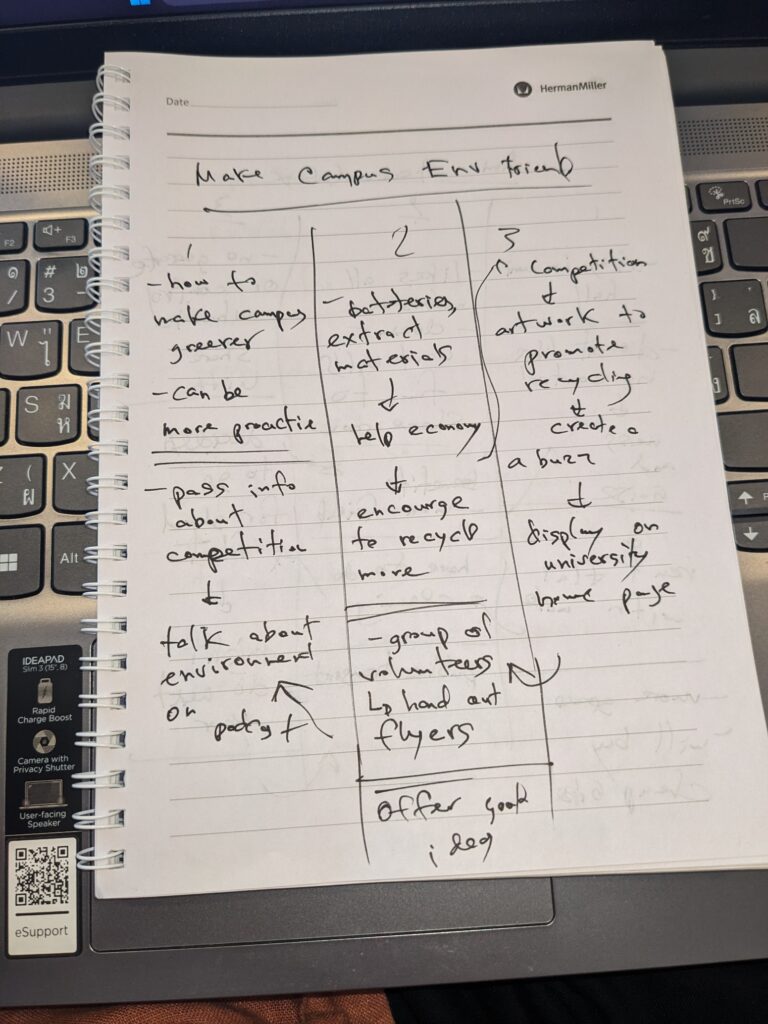 Date
HermanMiller
Make Campus Env friend
1
- how to
make campus
greener
- can be
more proactie
- pass info
about
competition
↓
talk about
environment
on
podcast
2
- batteries
extract
materials
↓
help economy
↓
encourge
to recycle
more
- group of
volunteers
↳ hand out
flyers
offer good
idea
3
Competition
↓
artwork to
promote
recycling
↓
create a
a buzz
↓
display on
university
home page
F2
F3
PrtSc
๑
/
#
๒
3
-
W
ไ
"
E
S
ม
ห
(
ผ
X
Alt
๙
ช
ว
ล
IDEAPAD
Slim 3 (15", 8)
Rapid
Charge Boost
Camera with
Privacy Shutter
User-facing
Speaker
eSupport